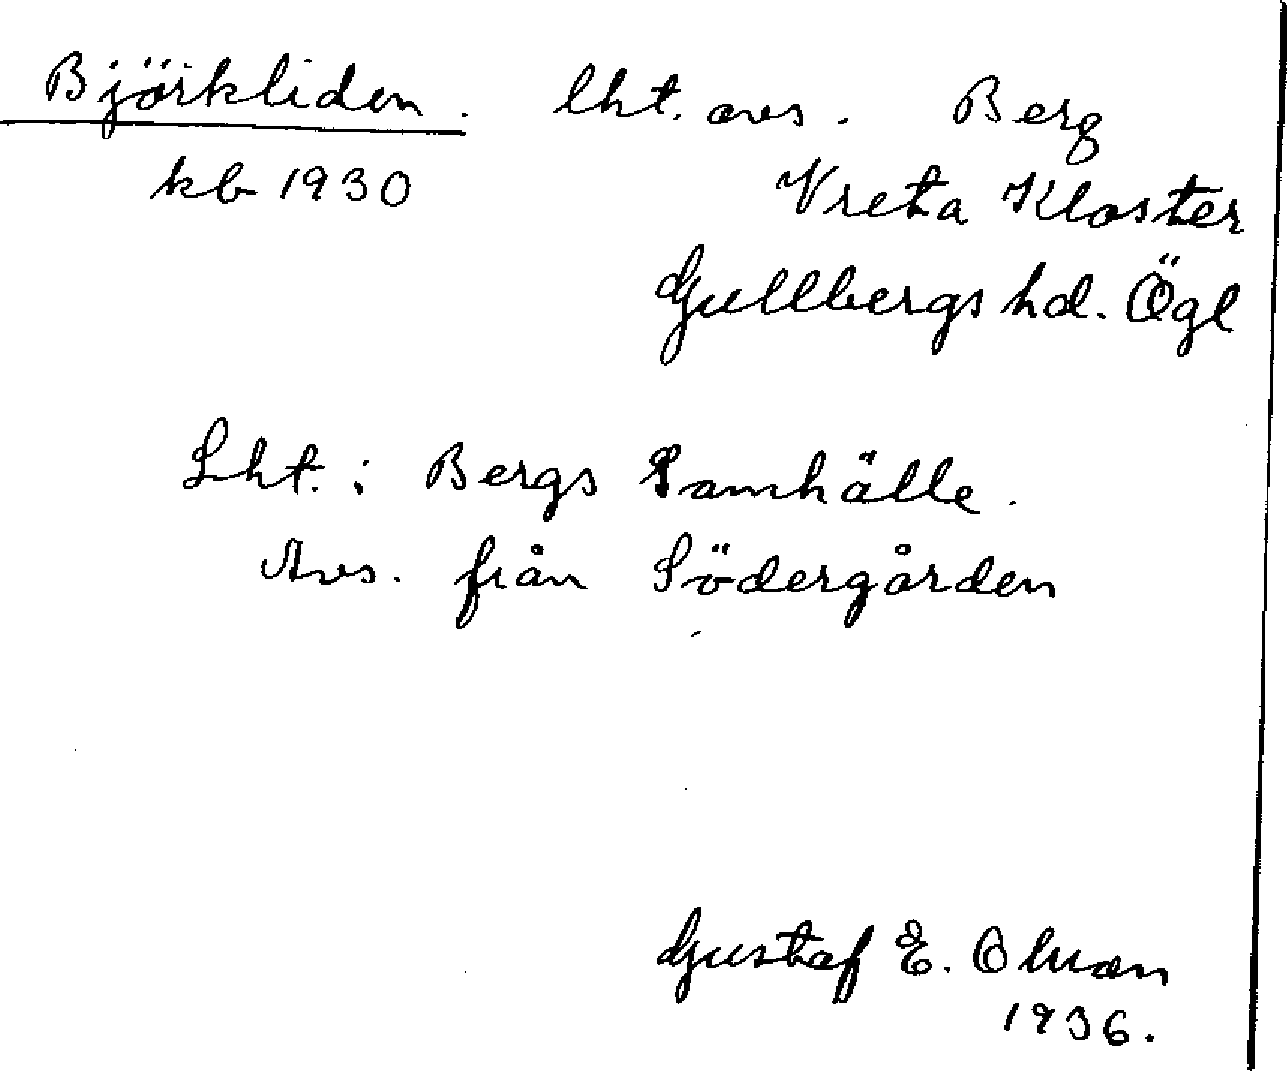 Björkliden. lht. avs. Berg
kb 1930 Vreta Kloster
Gullbergs hd. Ögl
Lht. i Bergs Samhälle.
Avs. från Södergården
Gustaf E. Olman
1936.